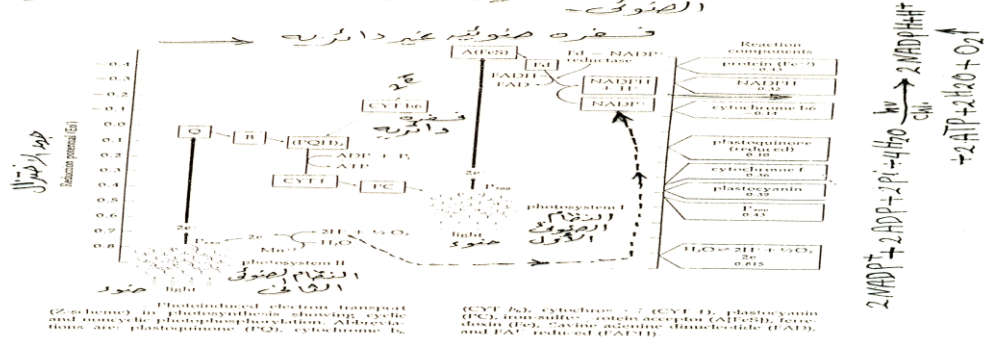 الضوئى -
فسفره ضوئيه غير دائريه
جهد الاختزال
Reduction potential (En)
-0.4
-0.3
-0.2
-0.1
0.0
0.1
0.2
0.3
0.4
0.5
0.6
0.7
0.8
A(FeS)
Fd
Fd - NADP⁺
reductase
FADH
FAD
NADPH
+ H⁺
NADP⁺
2e
CYT b6
فسفره
دائريه
Q
B
(PQH)₂
ADP + Pi
ATP
CYT f
PC
2e
P700
photosystem I
النظام
الضوئى
الأول
light
ضوء
2e
2e
2H⁺ + ½ O₂
H₂O
Mn
photosystem II
النظام الضوئى
الثانى
light
ضوء
Reaction
components
protein (Fe
0.43
NADPH
0.32
cytochrome b6
0.14
plastoquinone
(reduced)
0.10
cytochrome f
0.36
plastocyanin
0.39
P700
0.43
H₂O ⇌ 2H⁺ + ½O₂
2e
0.815
2NADP⁺ + 2ADP + 2Pi + 4H₂O hν chl. → 2NADPH+H⁺
+ 2ATP + 2H₂O + O₂↑
Photoinduced electron transport
(Z-scheme) in photosynthesis showing cyclic
and noncyclic photophosphorylation. Abbrevia-
tions are: plastoquinone (PQ), cytochrome b₆
(CYT b₆), cytochrome f (CYT f), plastocyanin
(PC), iron-sulfur protein acceptor (A[FeS]), ferre-
doxin (Fe), flavine adenine dinucleotide (FAD),
and FAD reduced (FADH).